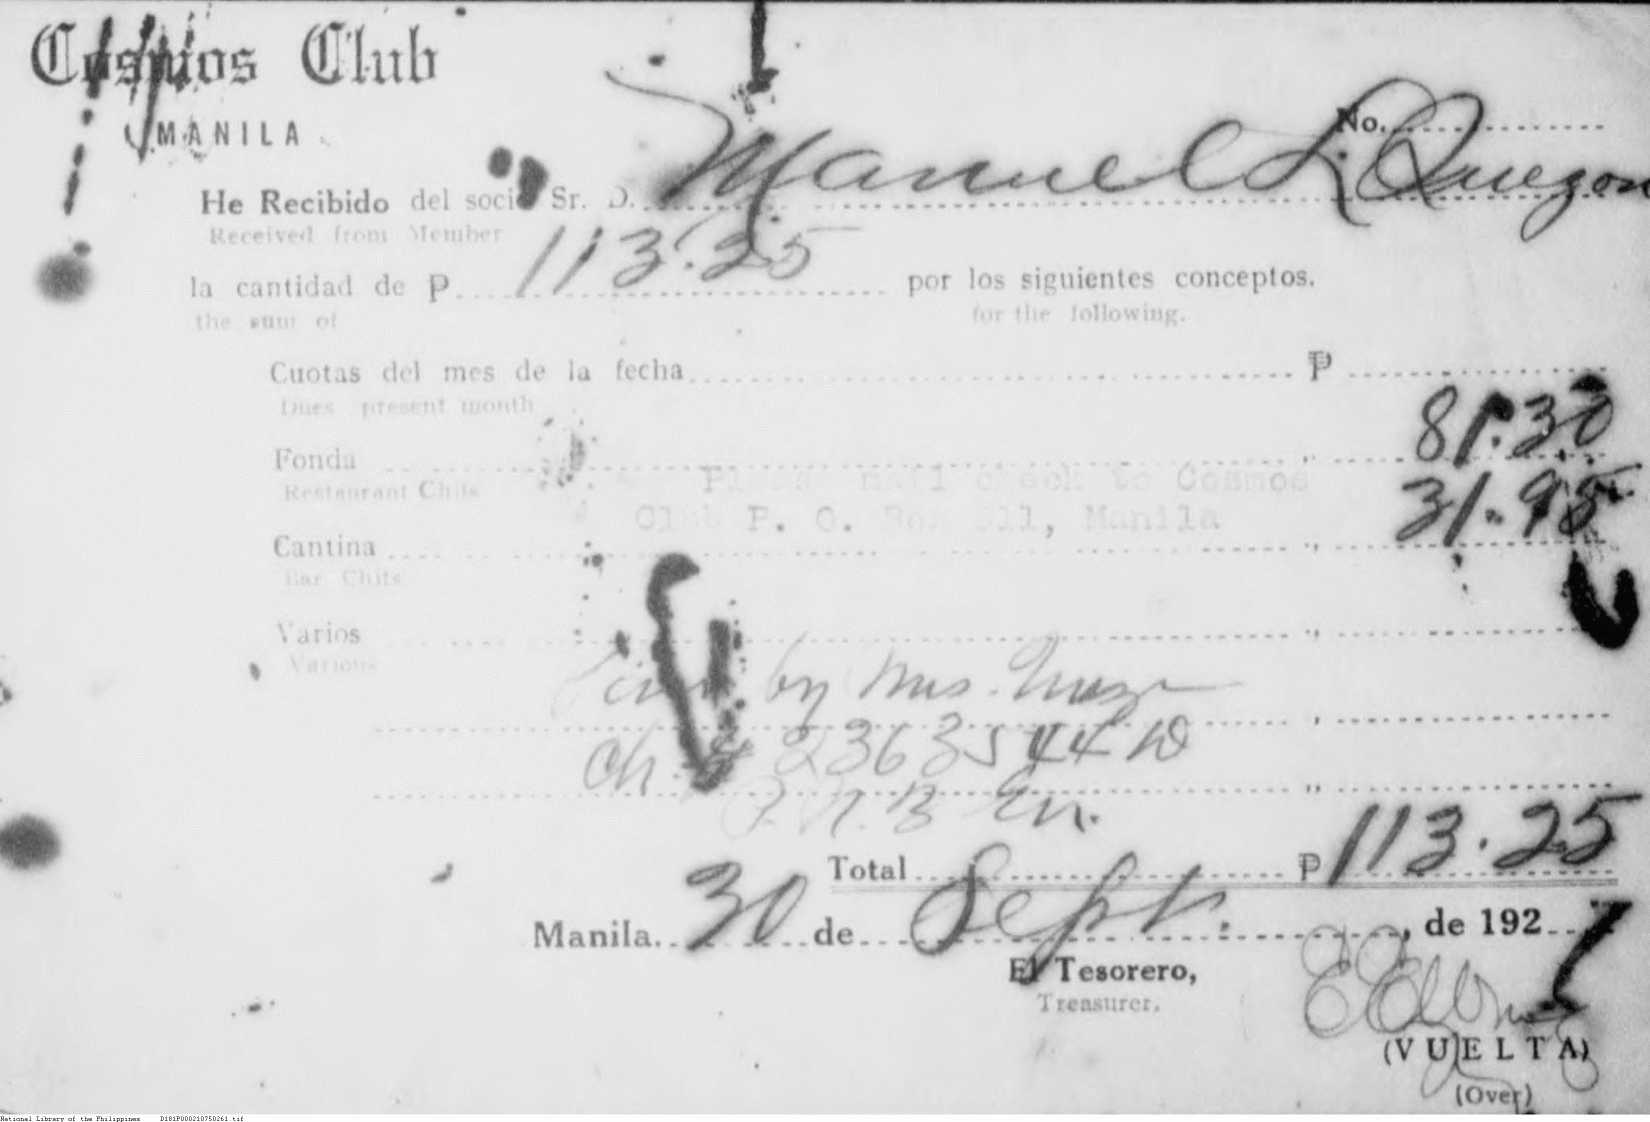 Cosmos Club
MANILA
No.
He Recibido del socio Sr. D. Manuel L Quezon
Received from Member
la cantidad de ₱ 113.25 por los siguientes conceptos.
the sum of for the following.
Cuotas del mes de la fecha ₱
Dues present month
Fonda " 81.30
Restaurant Chits
Please mail check to Cosmos
Club P. O. Box 311, Manila
Cantina " 31.95
Bar Chits
Varios "
Various
by Mrs.
Ch. # 236354
P.N.B
Total ₱ 113.25
Manila. 30 de Sept. , de 192
El Tesorero,
Treasurer.
(VUELTA)
(Over)
National Library of the Philippines D181P000210750261.tif